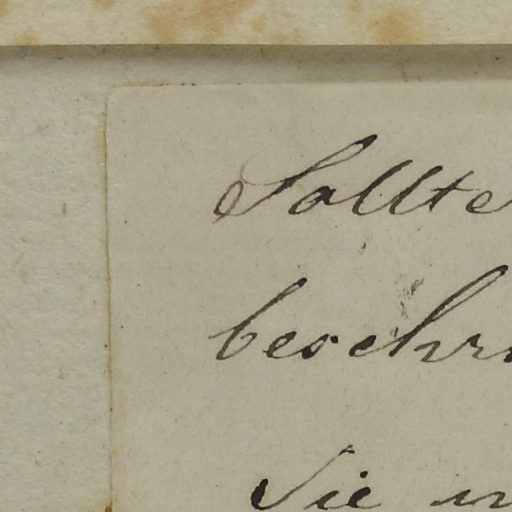 Sollte
beschr
Sie